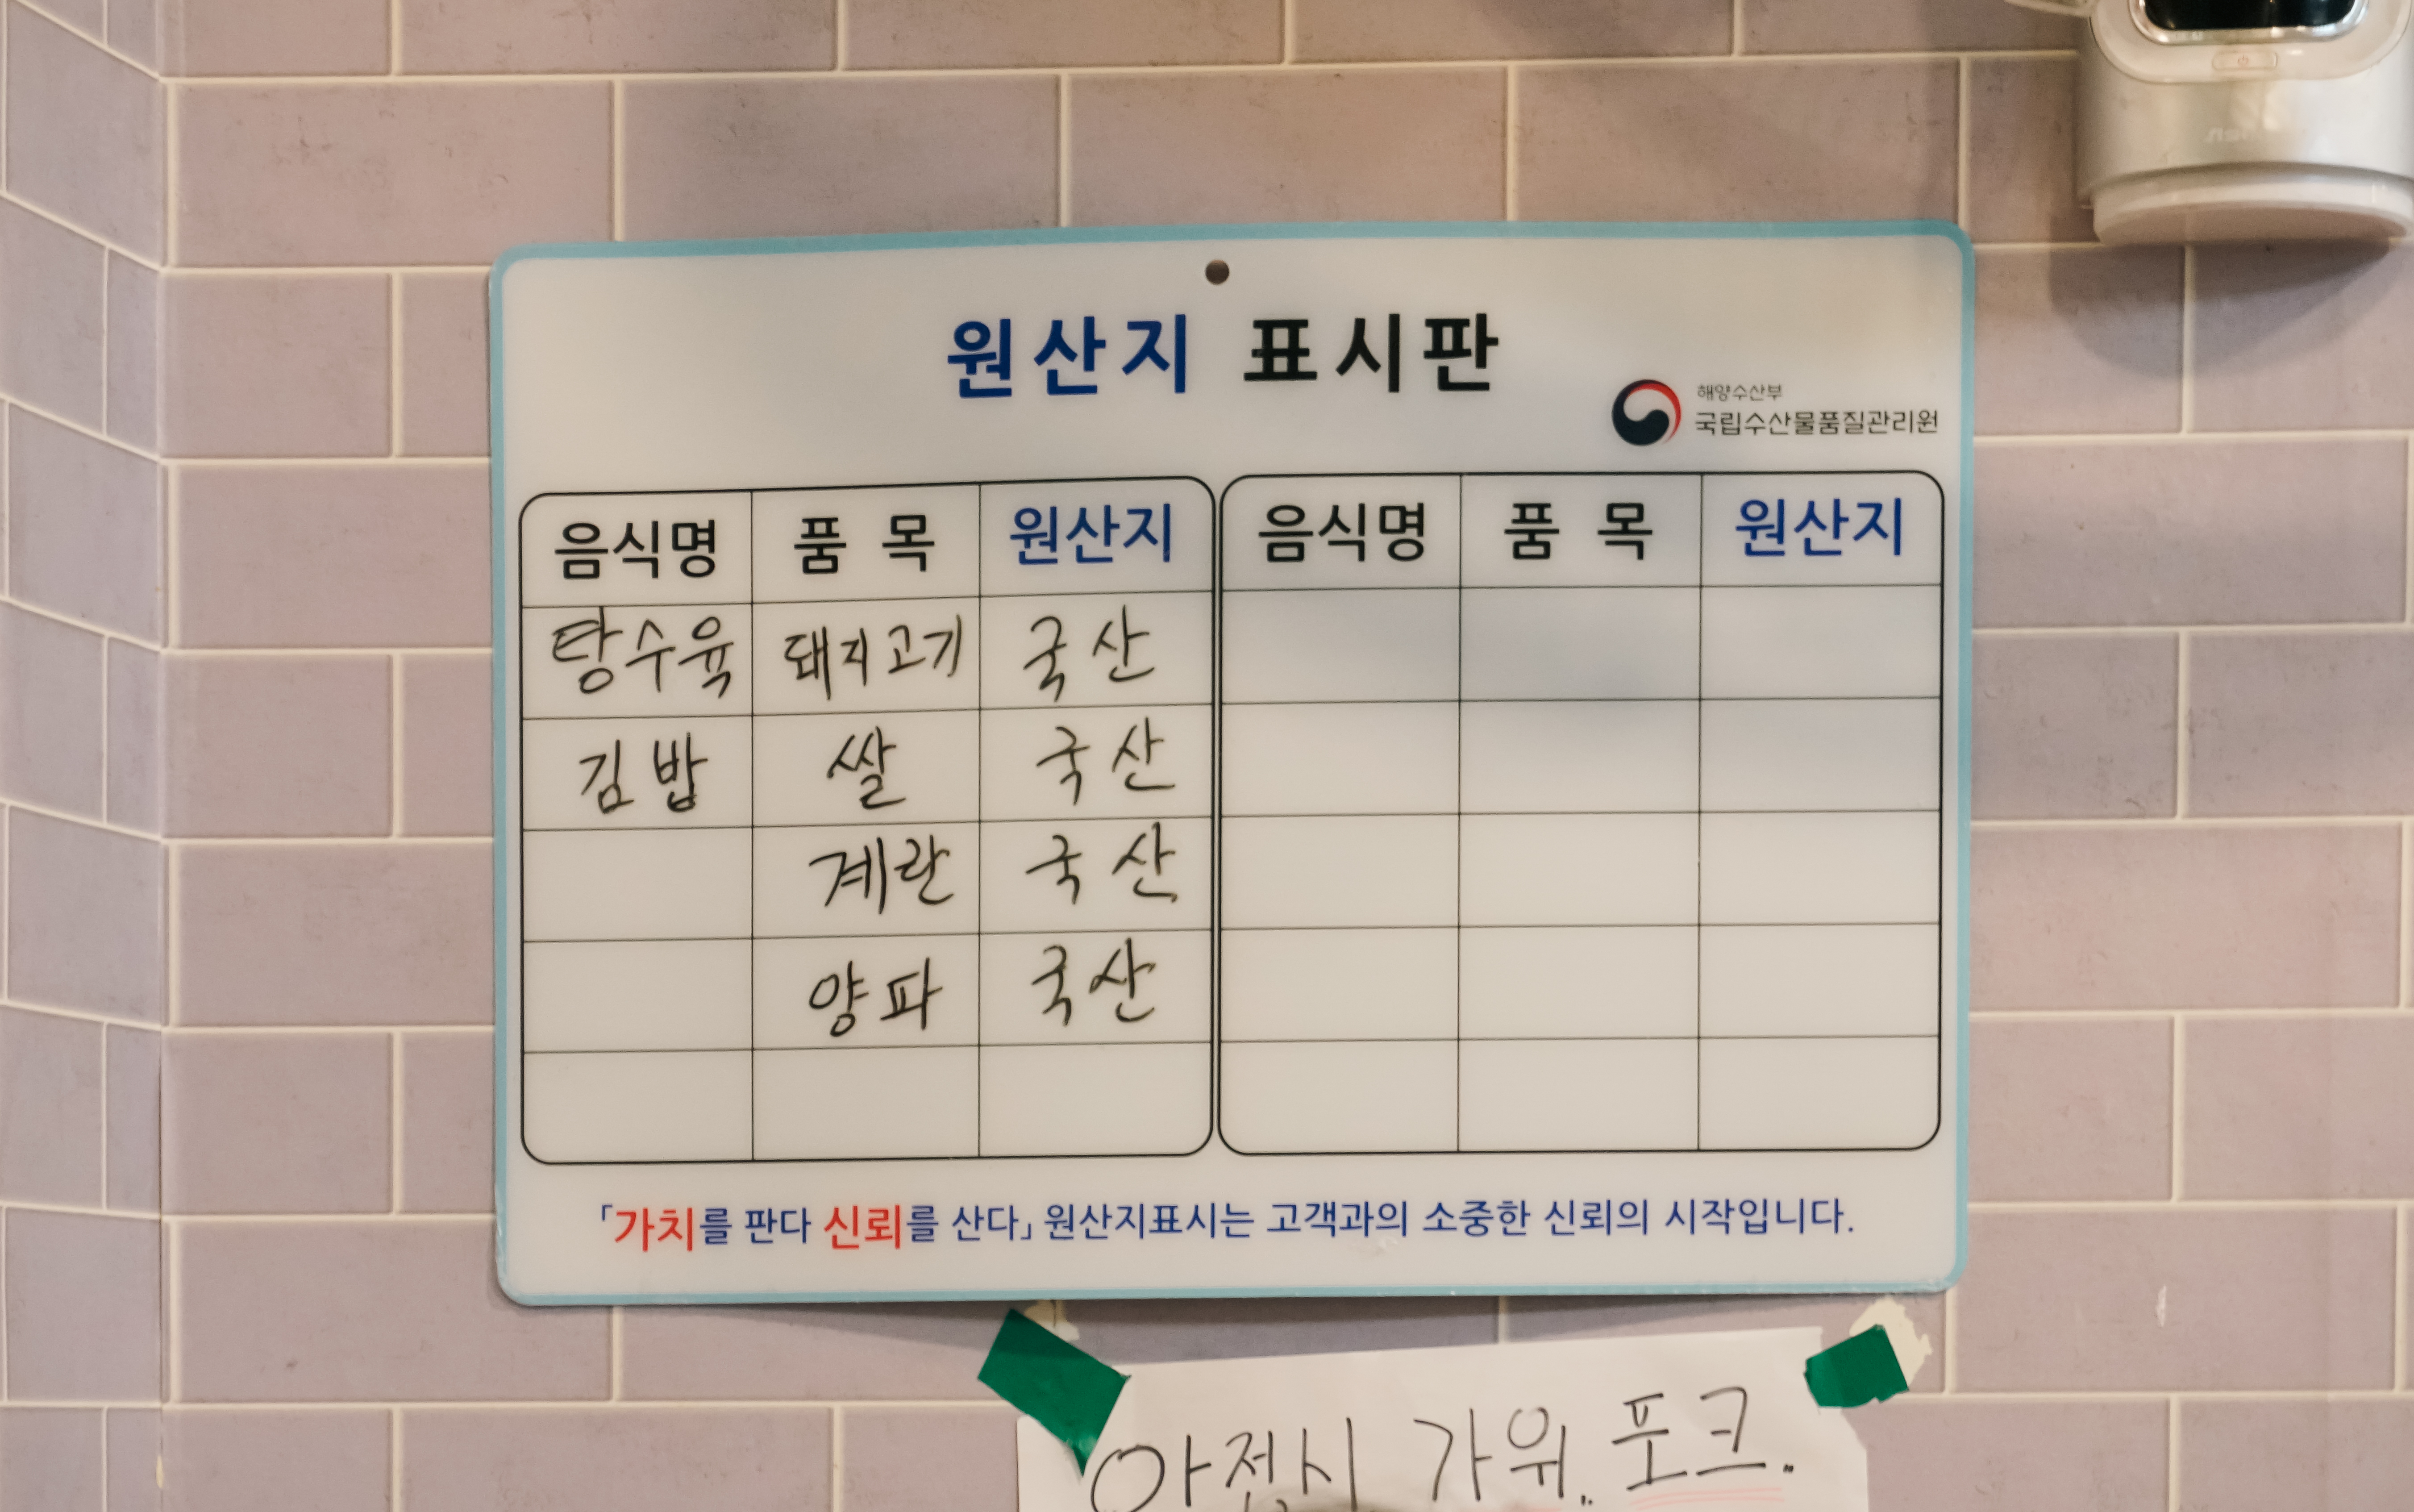 원산지 표시판
해양수산부
국립수산물품질관리원
음식명 품 목 원산지 음식명 품 목 원산지
탕수육 돼지고기 국산
김밥 쌀 국산
계란 국산
양파 국산
「가치를 판다 신뢰를 산다」 원산지표시는 고객과의 소중한 신뢰의 시작입니다.
앞접시 가위. 포크.